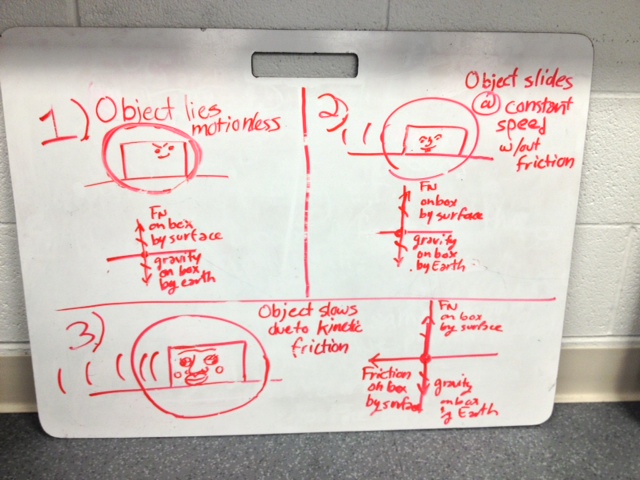 1) Object lies
motionless
FN
on box
by surface
gravity
on box
by earth
2) Object slides
@ constant
speed
w/out
friction
FN
on box
by surface
gravity
on box
by Earth
3) Object slows
due to kinetic
friction
FN
on box
by surface
Friction
on box
by surface
gravity
on box
by Earth